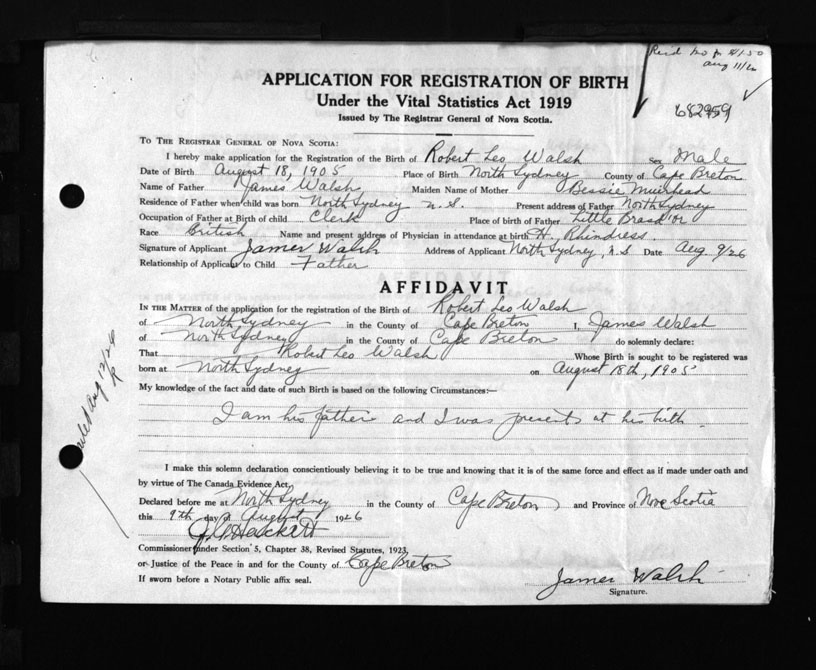 Aug 11/26
682959
APPLICATION FOR REGISTRATION OF BIRTH
Under the Vital Statistics Act 1919
Issued by The Registrar General of Nova Scotia.
TO THE REGISTRAR GENERAL OF NOVA SCOTIA:
I hereby make application for the Registration of the Birth of Robert Leo Walsh Sex Male
Date of Birth August 18, 1905 Place of Birth North Sydney County of Cape Breton
Name of Father James Walsh Maiden Name of Mother Bessie Muirhead
Residence of Father when child was born North Sydney N.S. Present address of Father North Sydney
Occupation of Father at Birth of child Clerk Place of birth of Father Little Brasd'or
Race British Name and present address of Physician in attendance at birth H. Rhindress.
Signature of Applicant James Walsh Address of Applicant North Sydney, N.S Date Aug. 9/26
Relationship of Applicant to Child Father
AFFIDAVIT
IN THE MATTER of the application for the registration of the Birth of Robert Leo Walsh
of North Sydney in the County of Cape Breton I, James Walsh
of North Sydney in the County of Cape Breton do solemnly declare:
That Robert Leo Walsh Whose Birth is sought to be registered was
born at North Sydney on August 18th, 1905
My knowledge of the fact and date of such Birth is based on the following Circumstances:—
I am his father and I was present at his birth.
I make this solemn declaration conscientiously believing it to be true and knowing that it is of the same force and effect as if made under oath and
by virtue of The Canada Evidence Act.
Declared before me at North Sydney in the County of Cape Breton and Province of Nova Scotia
this 9th day of August 1926
Commissioner under Section 5, Chapter 38, Revised Statutes, 1923,
or Justice of the Peace in and for the County of Cape Breton
If sworn before a Notary Public affix seal.
James Walsh
Signature.
Aug 12/26